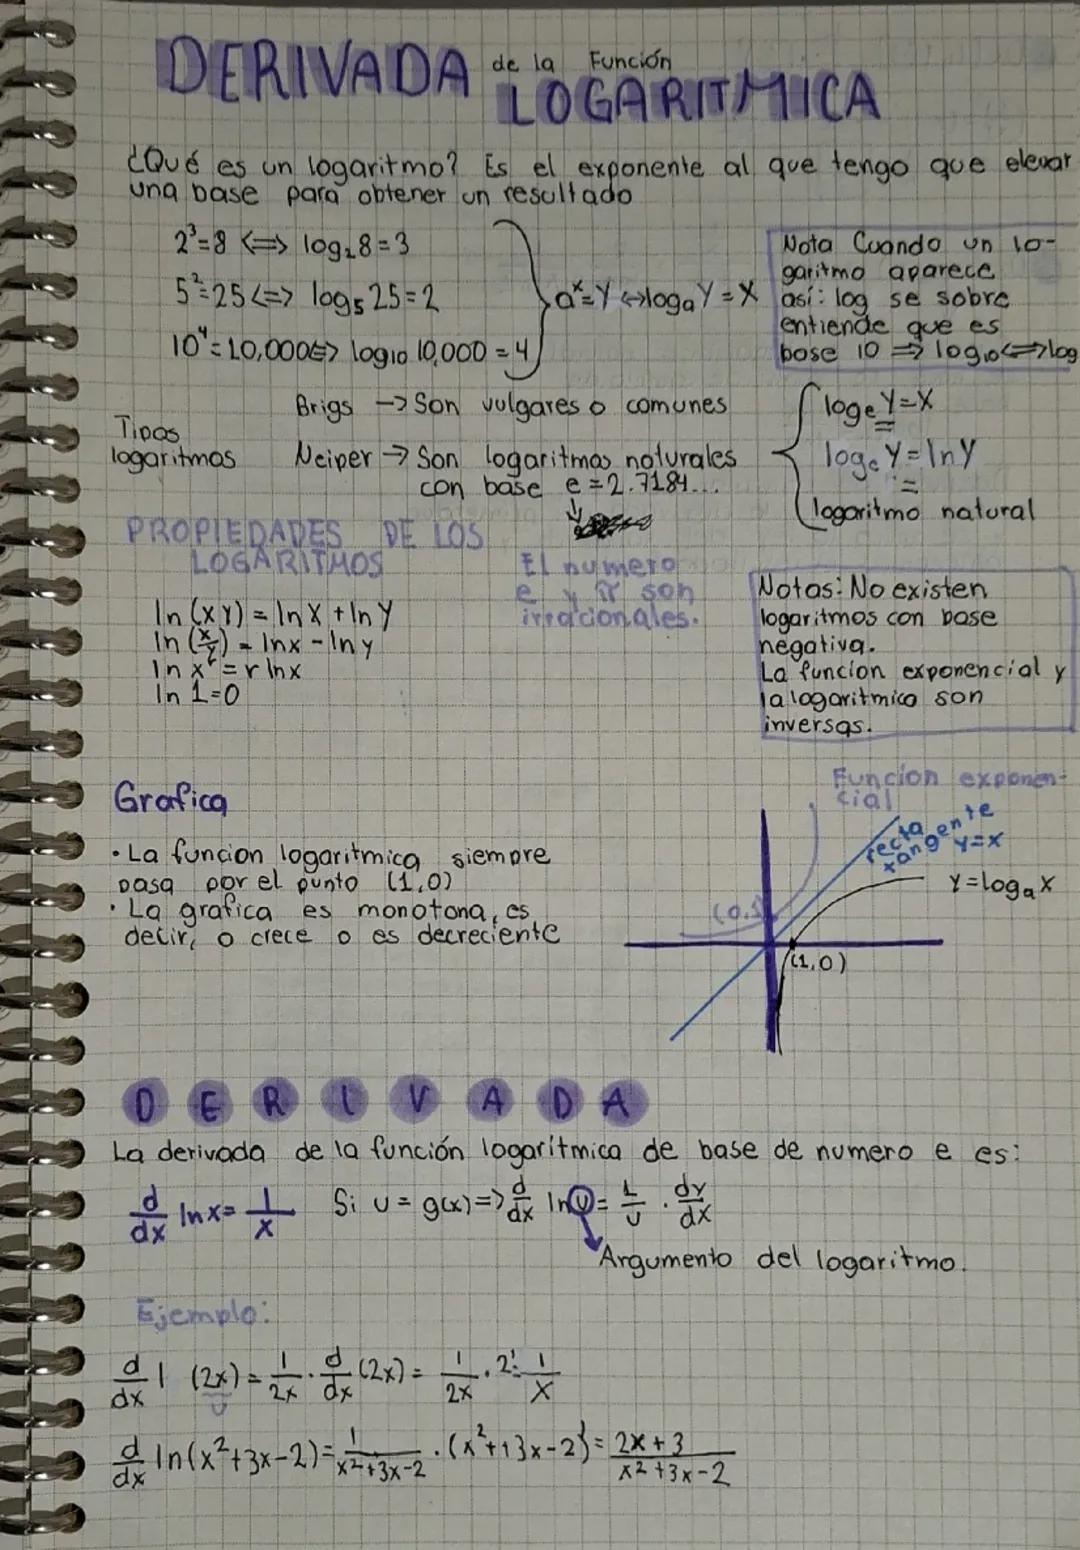 DERIVADA de la Función
LOGARITMICA
¿Qué es un logaritmo? Es el exponente al que tengo que elevar
una base para obtener un resultado
2³=8 <=> log₂8=3
5²=25<=> log₅25=2
10⁴=10,000<=> log₁₀ 10,000 = 4
aˣ=Y<->logₐY=X
Nota Cuando un lo-
garitmo aparece
así: log se sobre
entiende que es
base 10 => log₁₀<=>log
Tipos
logaritmos
Brigs -> Son vulgares o comunes
Neiper -> Son logaritmos naturales
con base e=2.7184...
logₑY=X
logₑY=lnY
logaritmo natural
PROPIEDADES DE LOS
LOGARITMOS
El numero
e y π son
irracionales.
ln(xY)=lnX+lnY
ln(x/y)=lnx-lny
ln xʳ=r lnx
ln 1=0
Notas: No existen
logaritmos con base
negativa.
La funcion exponencial y
la logaritmica son
inversas.
Grafica
· La funcion logaritmica siempre
pasa por el punto (1,0)
· La grafica es monotona, es
decir, o crece o es decreciente
Funcion exponen-
cial
recta
tangente
y=x
Y=logₐX
(0,1
(1,0)
DERIVADA
La derivada de la función logarítmica de base de numero e es:
d/dx lnx=1/x Si u=g(x)=>d/dx ln u=1/u · dy/dx
Argumento del logaritmo.
Ejemplo:
d/dx l (2x)=1/2x · d/dx (2x)=1/2x · 2=1/x
u
d/dx ln(x²+3x-2)=1/x²+3x-2 · (x²+13x-2)'=2x+3/x²+3x-2